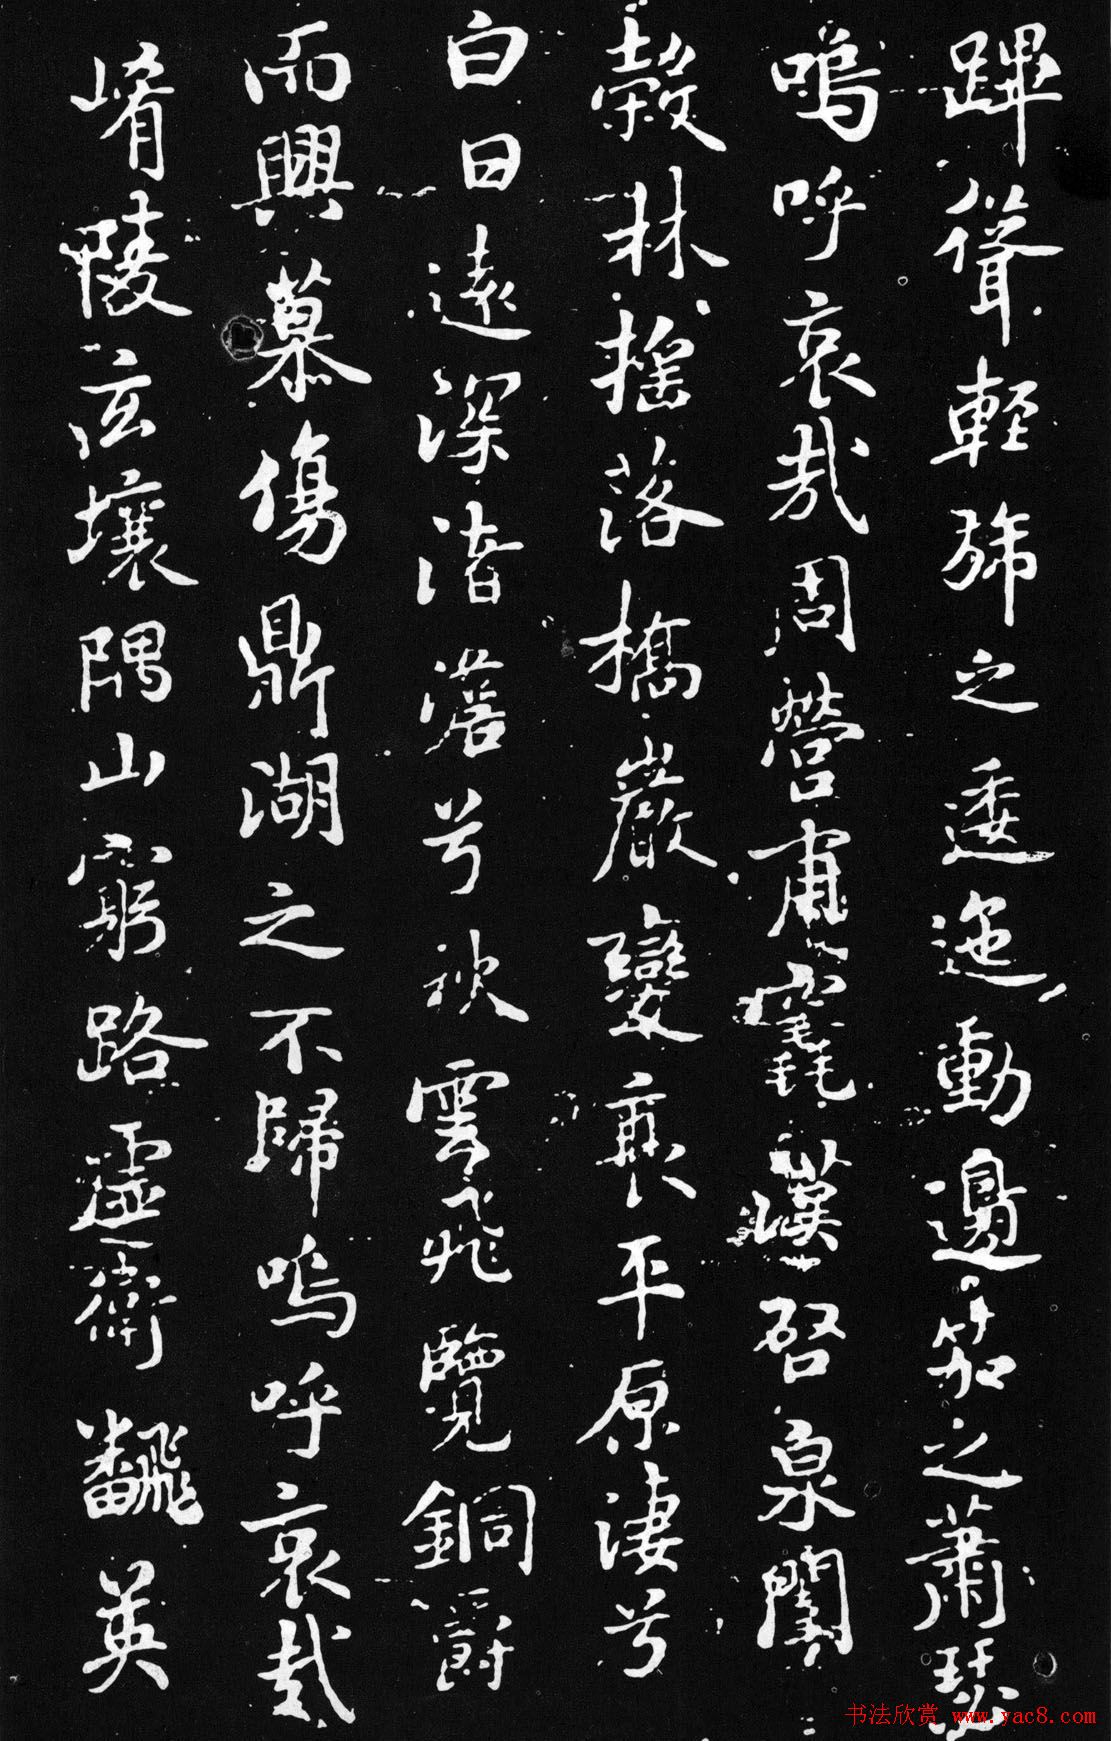 蹕聳輕旆之逶迤動邊笳之蕭瑟
嗚呼哀哉周營甫竁漢啓泉闈
穀林搖落橋巖變衰平原淒兮
白日遠深渚澹兮秋雲飛覽銅爵
而興慕傷鼎湖之不歸嗚呼哀哉
崤陵玄壤隅山窮路虛衛飜英
书法欣赏 www.yac8.com